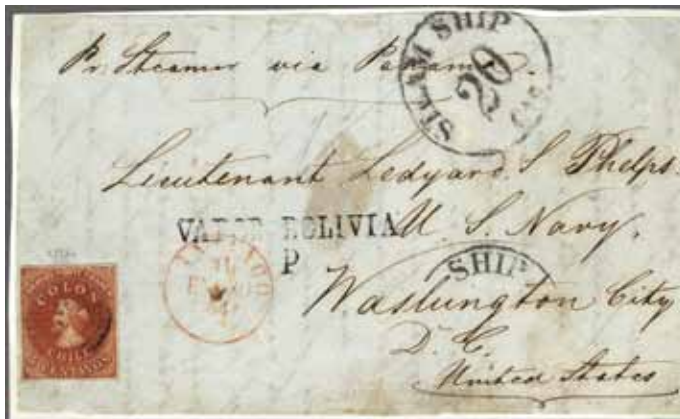 STEAM SHIP
20
Pr. Steamer via Panama.
Lieutenant Ledyard. S Phelps.
VAPOR BOLIVIA
U. S. Navy.
P
SHIP
Washington City
D. C.
United States
COLON
CHILE